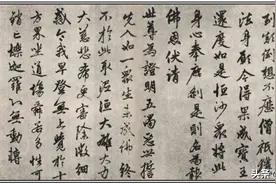 劫顛倒想不歷僧祇獲
法身願今得果成寶王
還度如是恒沙眾將此
深心奉塵刹是則名為報
佛恩伏請
世尊為證明五濁惡世誓
先入如一眾生未成佛終
不於此取泥洹大雄大力
大慈悲希更審除微細
惑令我早登無上覺於十
方界坐道場舜若多性可
銷亡爍迦羅心無動轉
头条